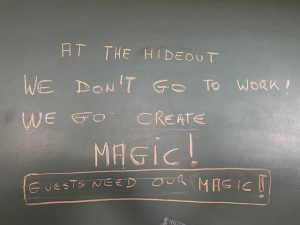 AT THE HIDEOUT
WE DON'T GO TO WORK!
WE GO CREATE
MAGIC!
GUESTS NEED OUR MAGIC!!